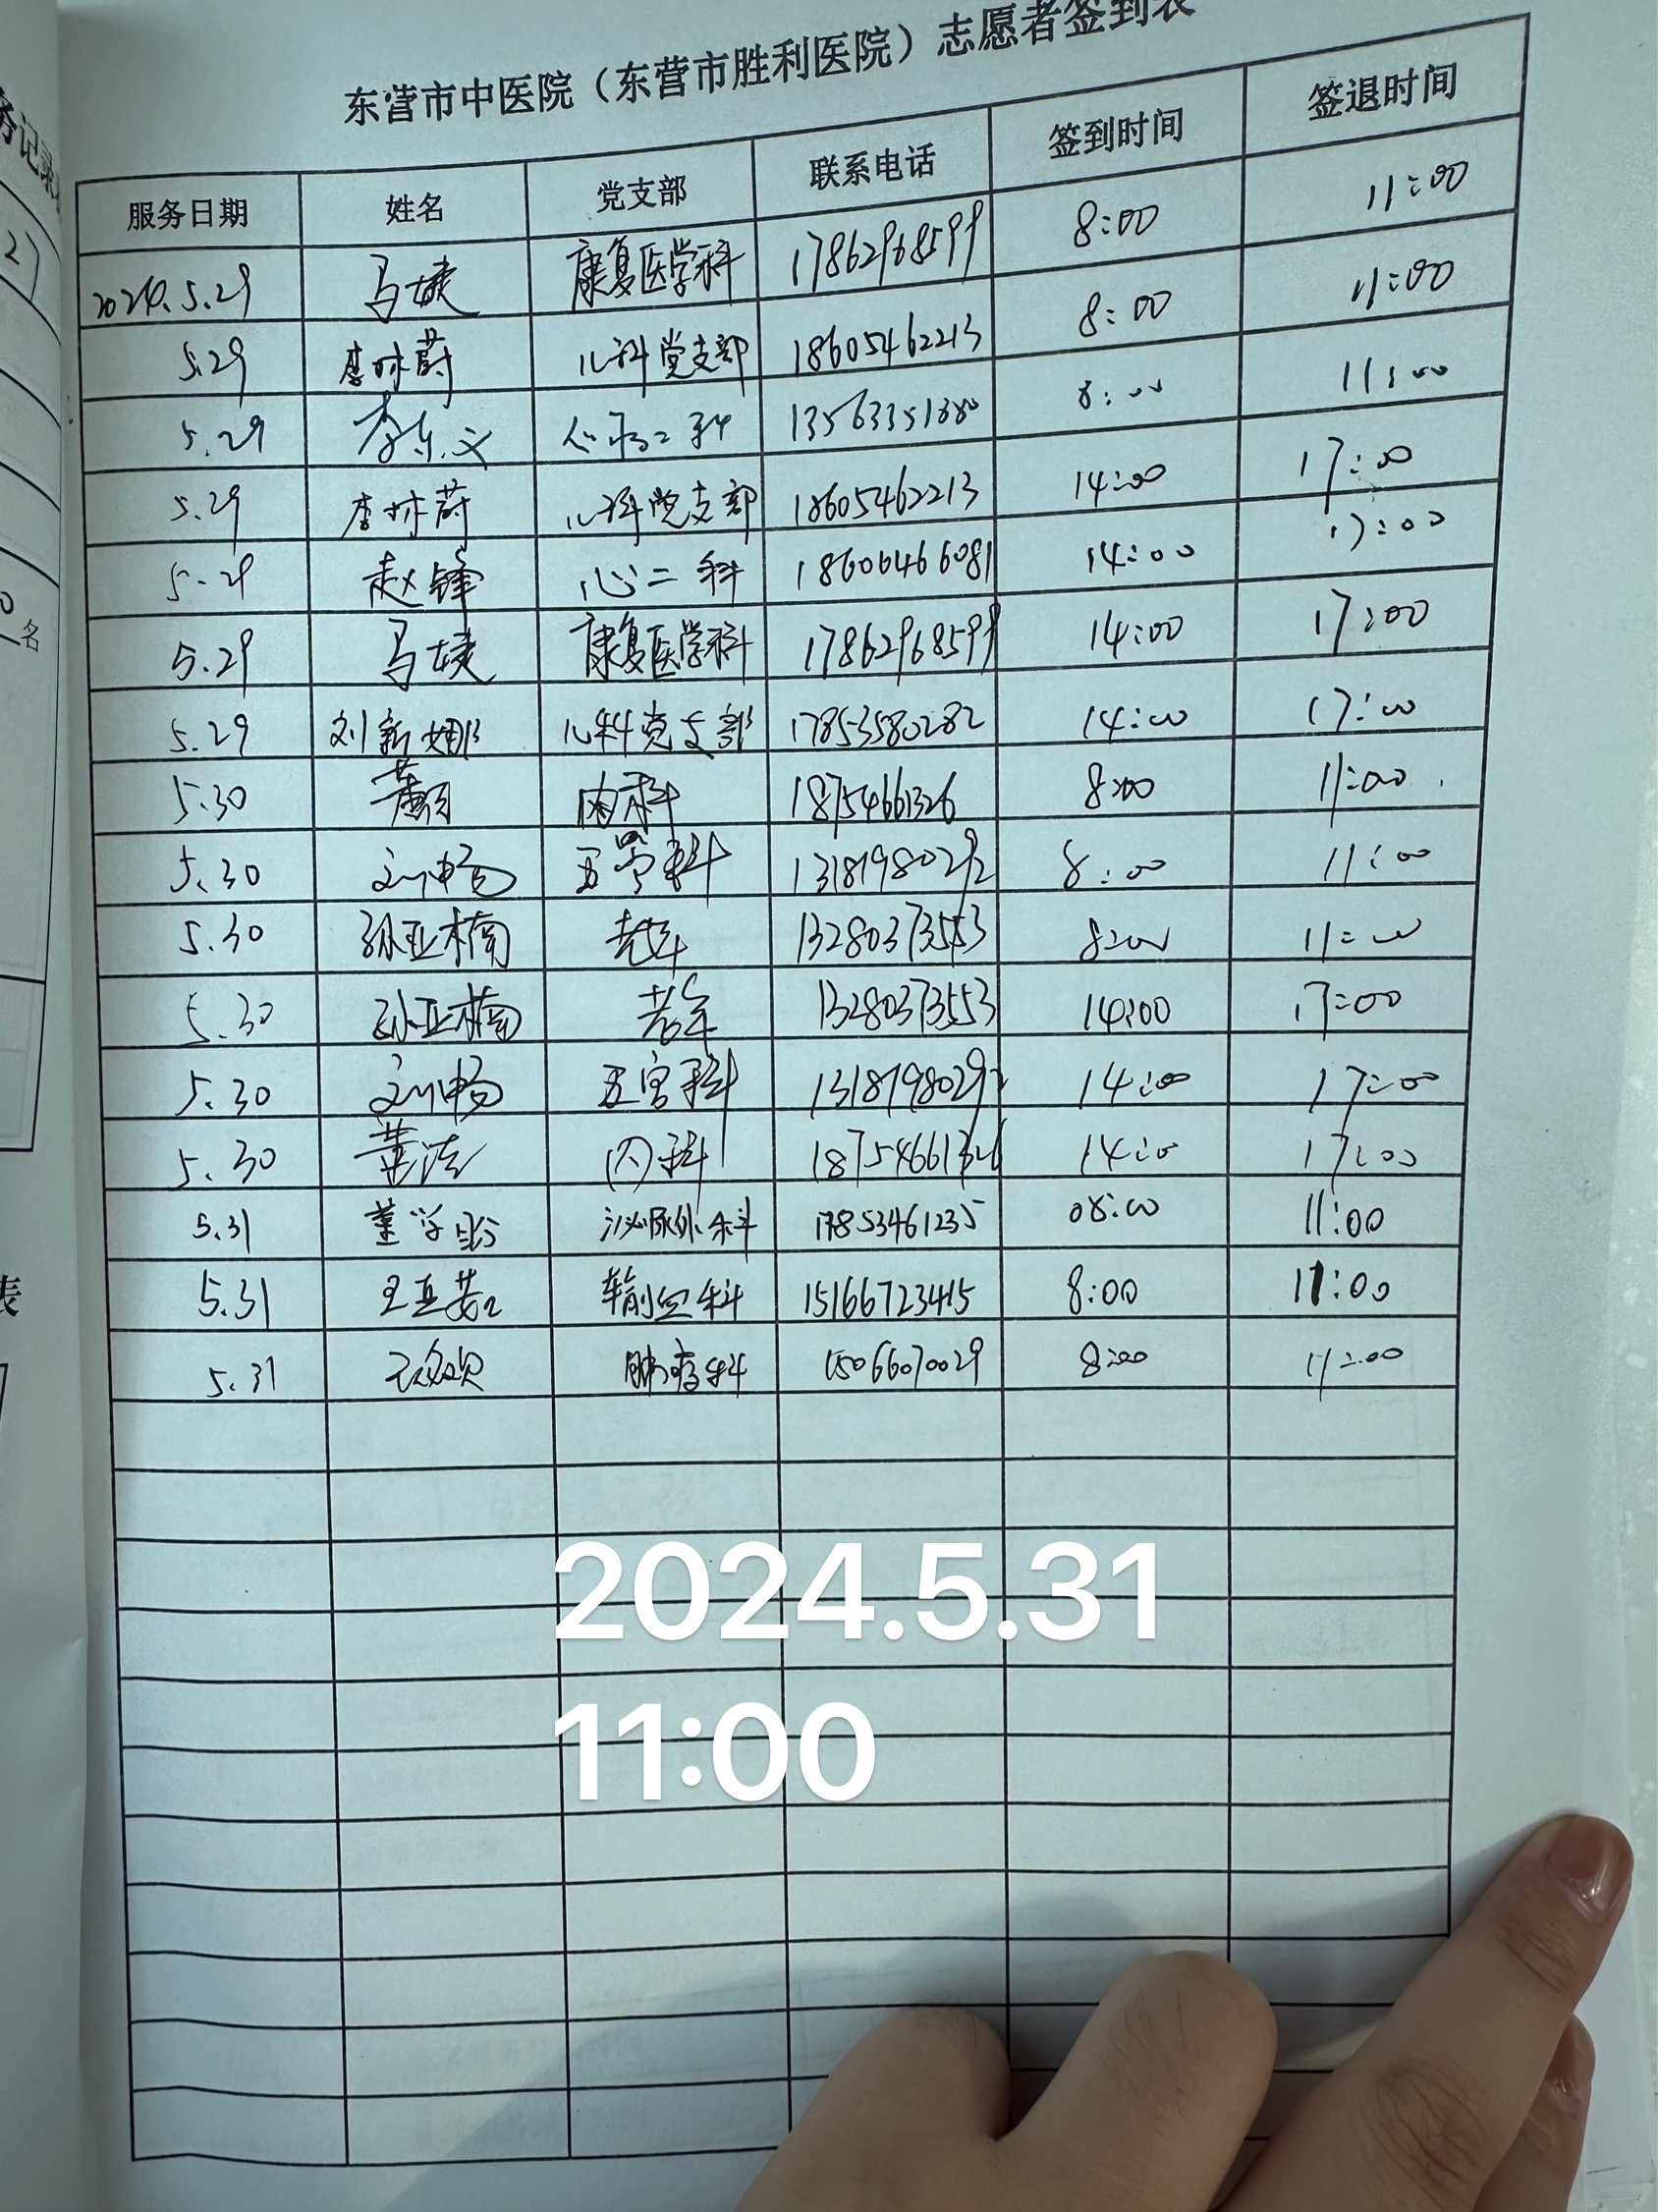 东营市中医院（东营市胜利医院）志愿者签到表
服务日期 姓名 党支部 联系电话 签到时间 签退时间
2024.5.29 马婕 康复医学科 17862968599 8:00 11:00
5.29 李林蔚 儿科党支部 18605462213 8:00 11:00
5.29 李东义 二科 13563351380 8:00 11:00
5.29 李林蔚 儿科党支部 18605462213 14:00 17:00
5.29 赵锋 心二科 18606466081 14:00 17:00
5.29 马婕 康复医学科 17862968599 14:00 17:00
5.29 刘新娜 儿科党支部 17853580282 14:00 17:00
5.30 内科 18754661326 8:00 11:00
5.30 刘畅 五官科 13181980292 8:00 11:00
5.30 孙亚楠 老年 13280373553 8:00 11:00
5.30 孙亚楠 老年 13280373553 14:00 17:00
5.30 刘畅 五官科 13181980292 14:00 17:00
5.30 内科 18754661326 14:00 17:00
5.31 董学 泌尿外科 17853461235 08:00 11:00
5.31 王 输血科 15166723415 8:00 11:00
5.31 肿瘤科 15066070029 8:00 11:00
2024.5.31
11:00
务记录
2)
0
名
表